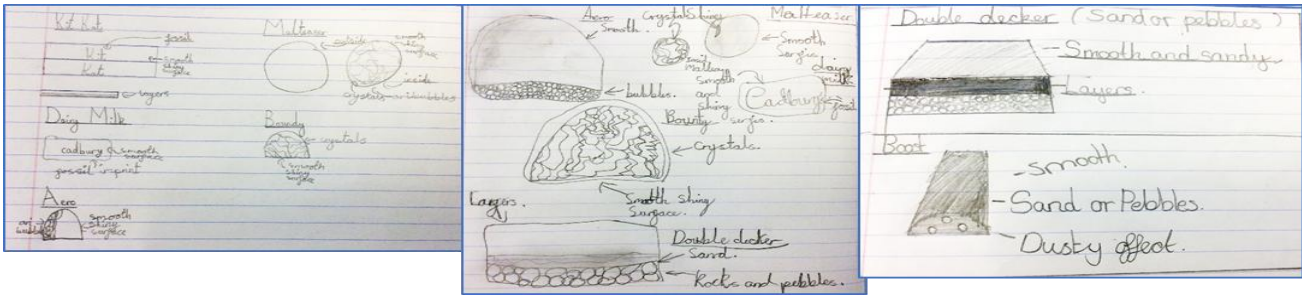 Kit Kat
fossil
Kit
Kat
smooth
shiny
surface
layers
Malteaser
outside
smooth
surface
inside
crystals
Dairy Milk
cadbury
smooth
surface
fossil imprint
Bounty
crystals
smooth
shiny
surface
Aero
air
bubbles
smooth
shiny
surface
Aero
Smooth.
bubbles.
Crystals
Shiny
Malteaser
Smooth
Smooth
and
shiny
dairy
milk
Cadbury
fossil
Bounty
Crystals.
Smooth shiny
Surface.
Layers.
Double decker
Sand.
Rocks and pebbles.
Double decker (Sand or pebbles)
Smooth and sandy
Layers.
Boost
Smooth.
Sand or Pebbles.
Dusty effect.